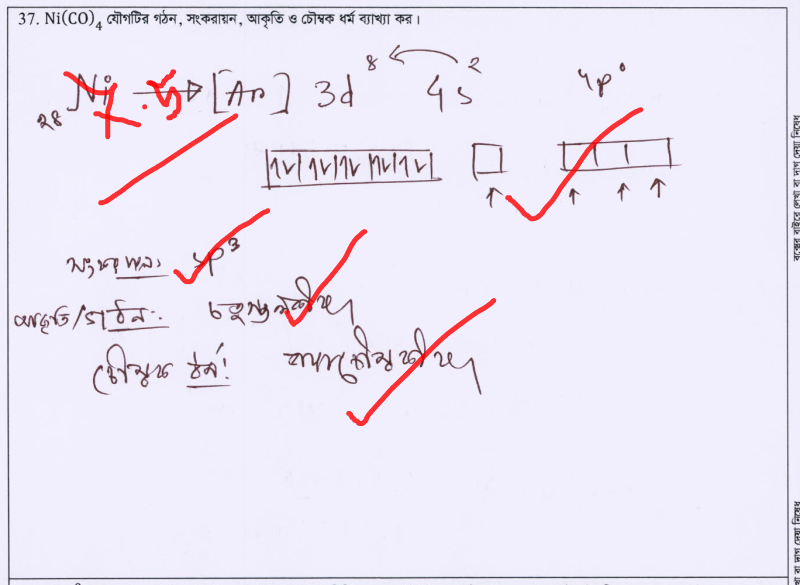 37. Ni(CO)₄ যৌগটির গঠন, সংকরায়ন, আকৃতি ও চৌম্বক ধর্ম ব্যাখ্যা কর।
₂₈Ni → [Ar] 3d⁸ 4s² 4p⁰
সংকরায়ন: sp³
আকৃতি/গঠন: চতুস্তলকীয়
চৌম্বক ধর্ম:
বক্সের বাইরে লেখা বা দাগ দেয়া নিষেধ